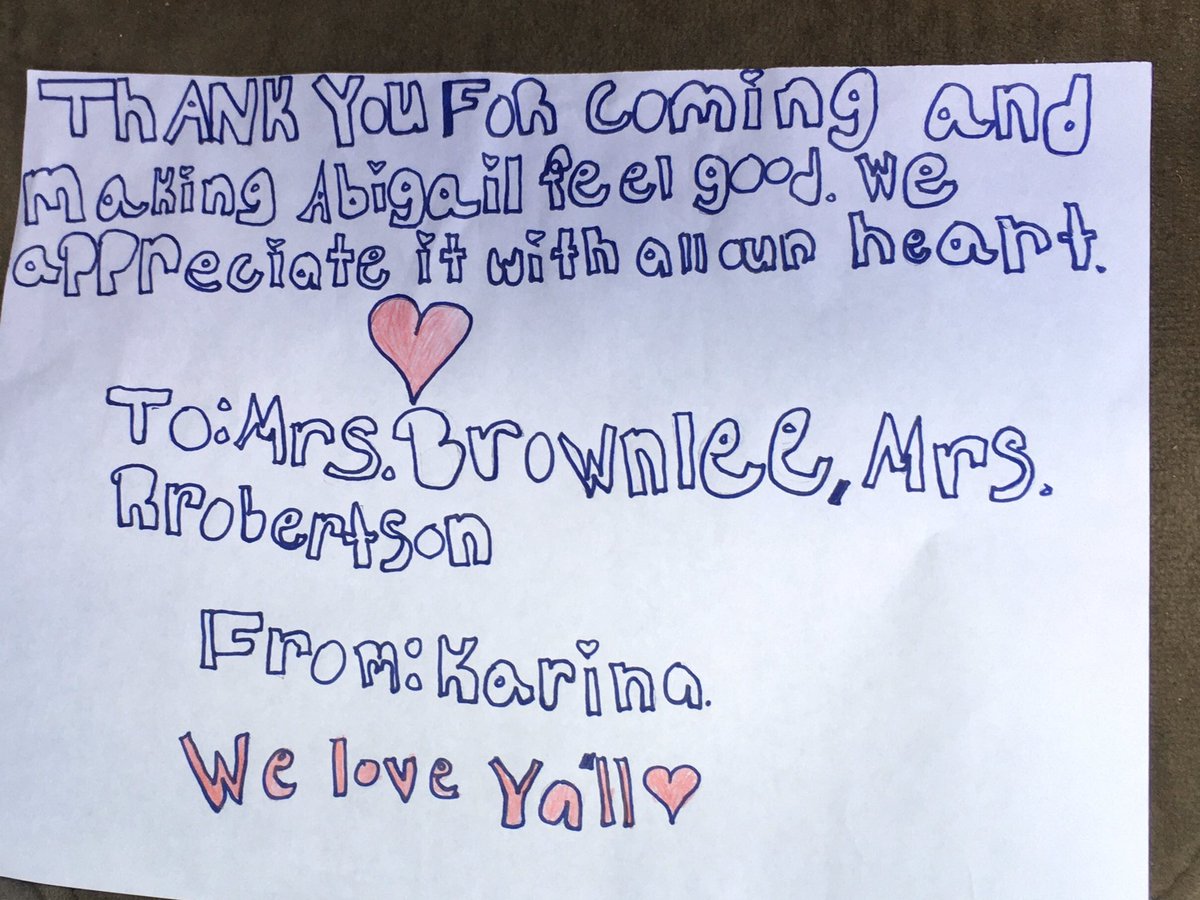 ThANK You FoR coming and
making Abigail feel good. We
appreciate it with all our heart.
To: Mrs. Brownlee, Mrs.
Rrobertson
From: Karina.
We love Ya'll